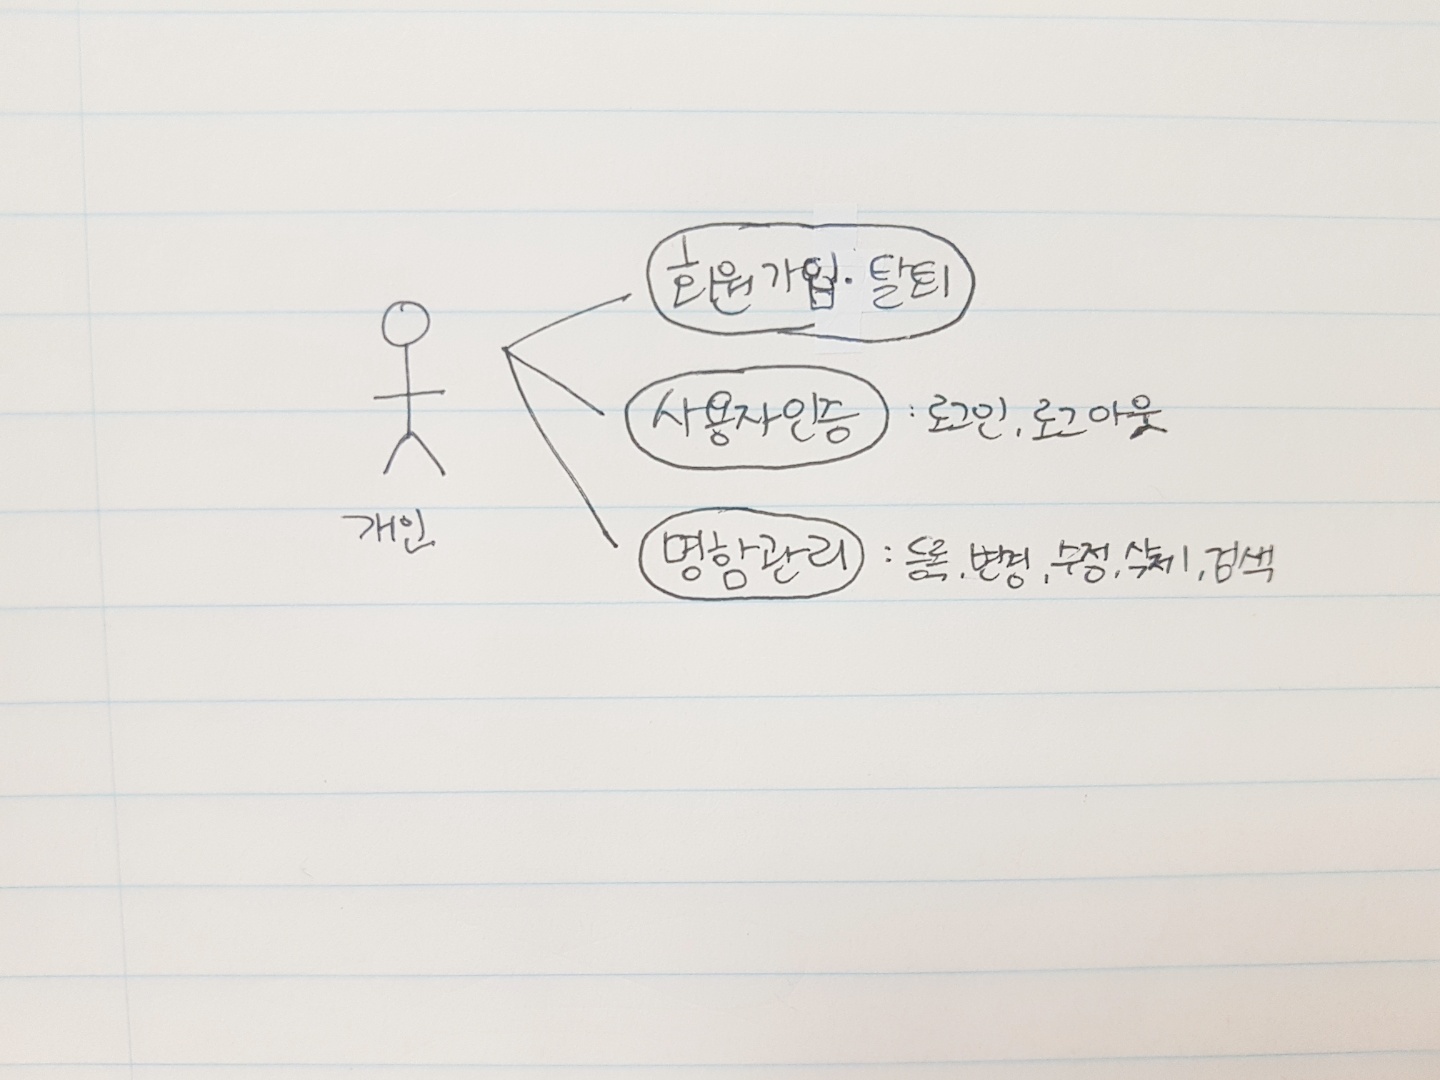 회원가입·탈퇴
사용자인증 : 로그인, 로그아웃
개인
명함관리 : 등록, 변경, 수정, 삭제, 검색